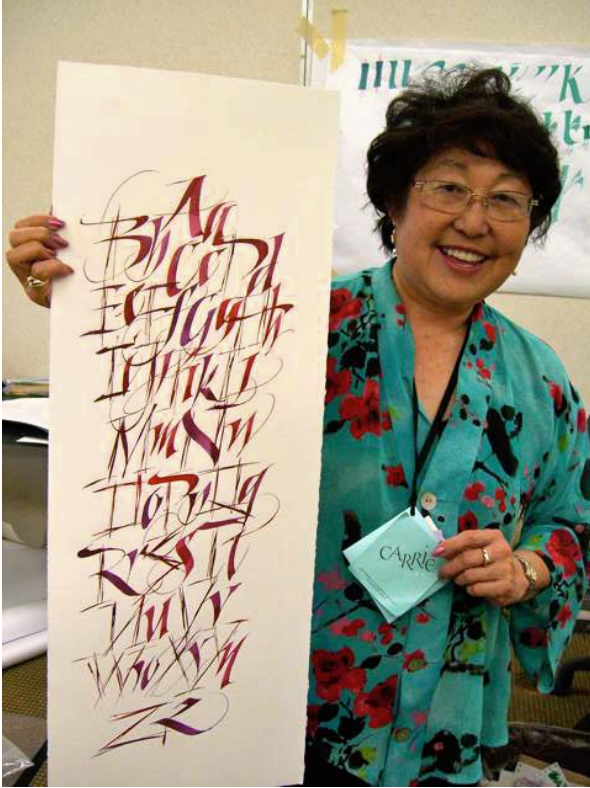 Aa
Bb
Cc Dd
Ee Ff Gg Hh
Ii Jj Kk Ll
Mm Nn
Oo Pp Qq
Rr Ss Tt
Uu Vv
Ww Xx Yy
Zz
CARRIE